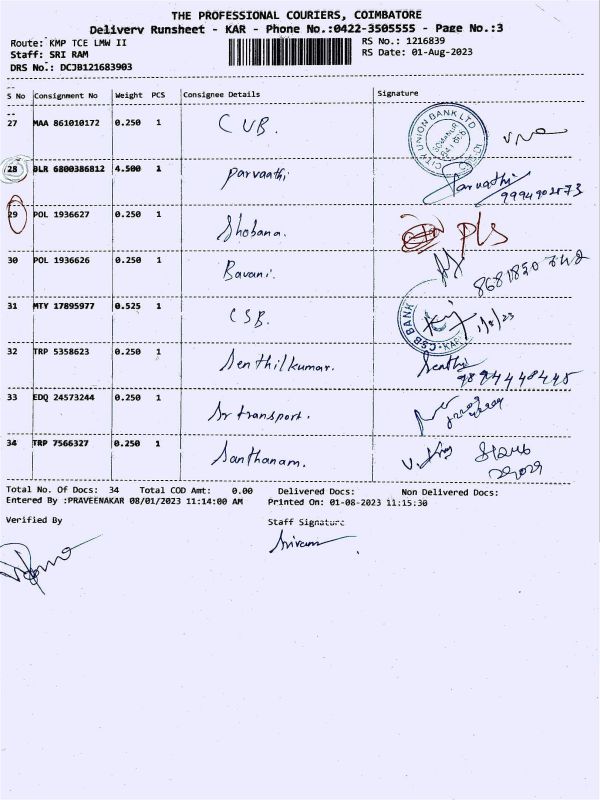 THE PROFESSIONAL COURIERS, COIMBATORE
Delivery Runsheet - KAR - Phone No.:0422-3505555 - Page No.:3
Route: KMP TCE LMW II RS No.: 1216839
Staff: SRI RAM RS Date: 01-Aug-2023
DRS No.: DCJB121683903
S No Consignment No Weight PCS Consignee Details Signature
27 MAA 861010172 0.250 1 CUB. CITY UNION BANK LTD
28 BLR 6800386812 4.500 1 Parvaathi Parvathi
9994902573
29 POL 1936627 0.250 1 Shobana. Pls
30 POL 1936626 0.250 1 Bavani.
31 MTY 17895977 0.525 1 CSB. CSB BANK KAR 1/8/23
32 TRP 5358623 0.250 1 Senthilkumar. Senthi
9894448445
33 EDQ 24573244 0.250 1 Sr transport.
34 TRP 7566327 0.250 1 Santhanam.
Total No. Of Docs: 34 Total COD Amt: 0.00 Delivered Docs: Non Delivered Docs:
Entered By :PRAVEENAKAR 08/01/2023 11:14:00 AM Printed On: 01-08-2023 11:15:30
Verified By Staff Signature
Sriram